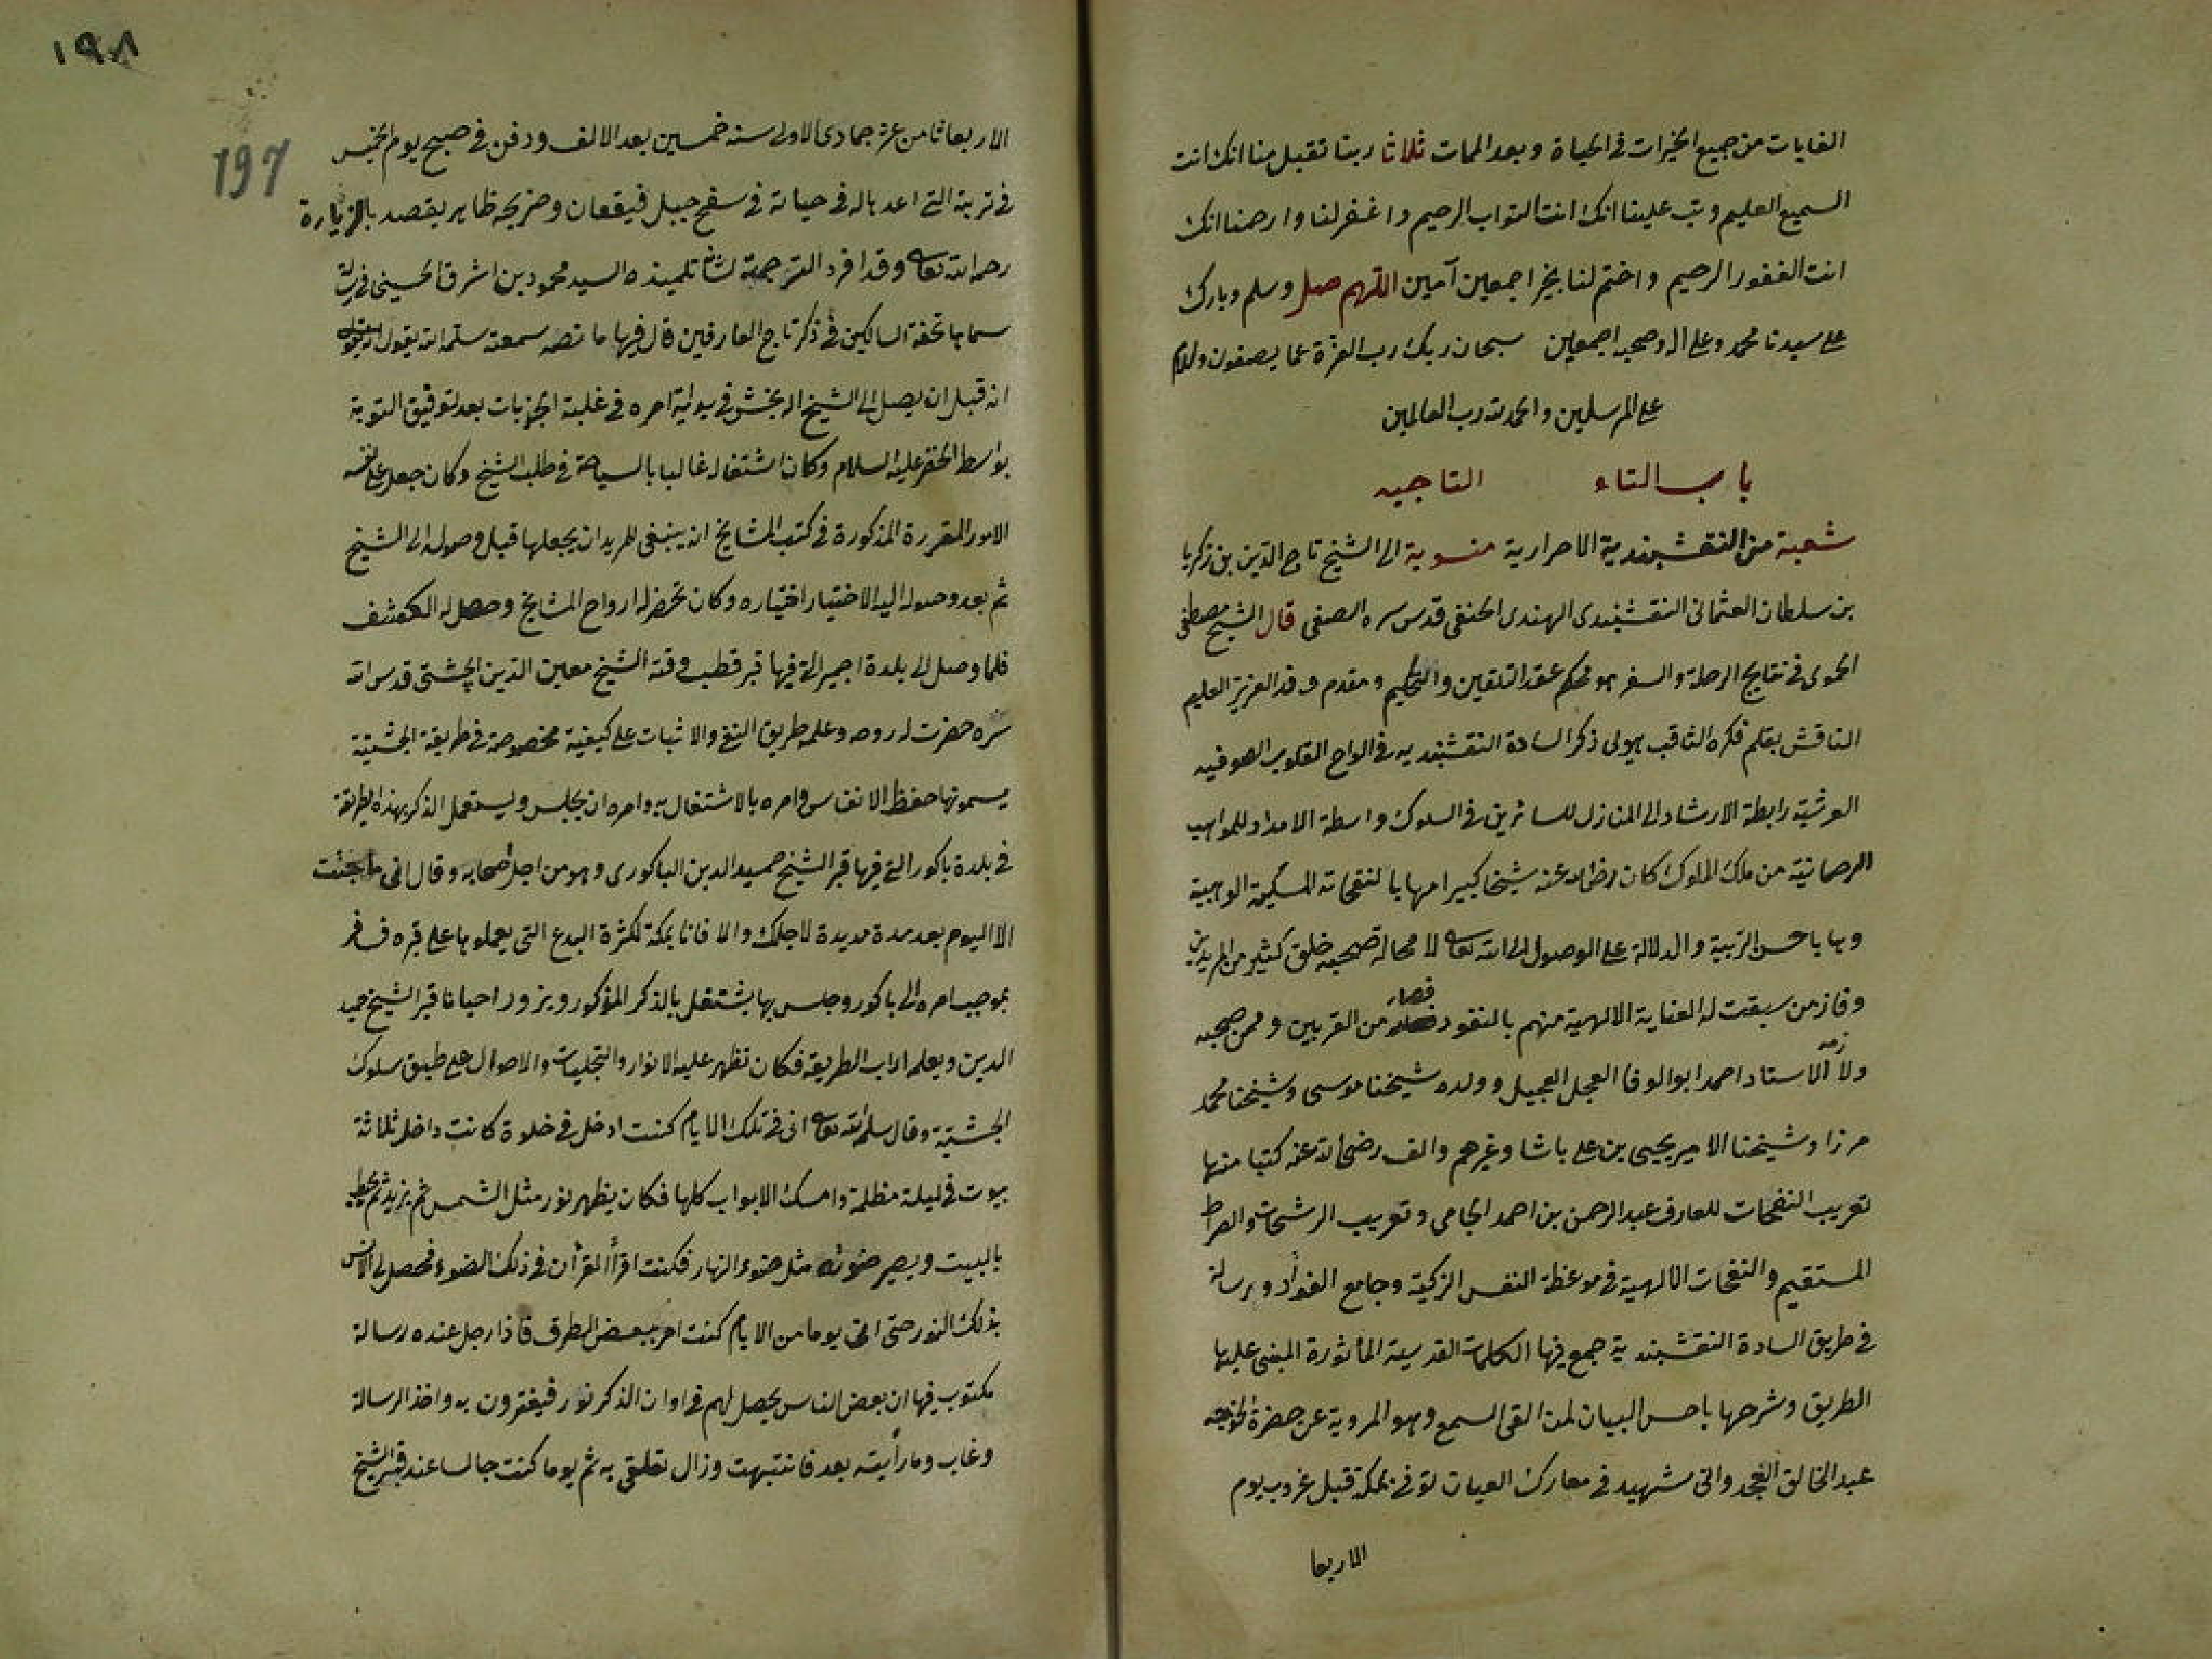 الغايات من جميع الخيرات في الحياة وبعد الممات ثلاثا ربنا تقبل منا انك انت
السميع العليم وتب علينا انك انت التواب الرحيم واغفر لنا وارحمنا انك
انت الغفور الرحيم واختم لنا بخير اجمعين آمين اللهم صل وسلم وبارك
على سيدنا محمد وعلى اله وصحبه اجمعين سبحان ربك رب العزة عما يصفون وسلام
على المرسلين والحمد لله رب العالمين
باب التاء التاجيه
شعبة من النقشبندية الاحرارية منسوبة الى الشيخ تاج الدين بن زكريا
بن سلطان العثمانى النقشبندى الهندى الحنفى قدس سره الصفى قال الشيخ مصطفى
الحموى فى نتايج الرحلة والسفر هو محكم عقد التلقين والتحكيم ومقدم وفد العزيز العليم
الناقش بقلم فكره الثاقب هيولى ذكر السادة النقشبنديه فى الواح القلوب الصوفيه
العرشية رابطة الارشاد الى المنازل للسائرين فى السلوك واسطة الامداد للمواهب
الرحمانية من ملك الملوك كان رضى الله عنه شيخا كبيرا مهابا لنفحاته المسكية الواهبية
وهابا حسن التربية والدلالة على الوصول الى الله تعالى لا محالة صحبه خلق كثير من المريدين
وفاز من سبقت له العناية الالهية منهم بالنقود فصار من المقربين وممن صحبه
ولازمه الاستاد احمد ابو الوفا العجل العجيل وولده شيخنا موسى وشيخنا محمد
مرزا وشيخنا الامير يحيى بن على باشا وغيرهم والف رضى الله عنه كتبا منها
تعريب النفحات للعارف عبد الرحمن بن احمد الجامى وتعريب الرشحات والصراط
المستقيم والنفحات الالهية فى موعظة النفس الزكية وجامع الفوأد ورسالة
فى طريق السادة النقشبندية جمع فيها الكلمات القدسية المأثورة المبنى عليها
الطريق وشرحها باحسن البيان لمن القى السمع وهو المروية عن حضرة الخوجه
عبد الخالق الغجدوانى شهيد فى معارك العيان توفى بمكة قبل غروب يوم
الاربعا
١٩٨
197
الاربعا ثامن عشر جمادى الاولى سنة خمسين بعد الالف ودفن فى صبح يوم الخميس
فى تربته التى اعدها له فى حياته فى سفح جبل قيقعان وضريحه ظاهر يقصد بالزيارة
رحمه الله تعالى وقد افرد الترجمة لشأنه تلميذه السيد محمود بن اشرف الحسينى فى رسالة
سماها تحفة السالكين فى ذكر تاج العارفين قال فيها ما نصه سمعته سلمه الله يقول
انه قبل ان يصل الى الشيخ اله بخش فى بداية امره فى غلبة الجذبات بعد توفيق التوبة
بواسطة الخضر عليه السلام وكان اشتغاله غالبا بالسياحة فى طلب الشيخ وكان جعل على نفسه
الامور المقررة المذكورة فى كتب المشايخ انه ينبغى للمريد ان يجعلها قبل وصوله الى الشيخ
ثم بعد وصوله اليه الاختيار اختياره وكان تحضر له ارواح المشايخ وحصل له الكشف
فلما وصل الى بلدة اجمير التى فيها قبر قطب وقته الشيخ معين الدين الچشتى قدس الله
سره حضرت له روحه وعلمه طريق النفى والاثبات على كيفية مخصوصة فى طريقة الچشتية
يسمونها حفظ الانفاس وامره بالاشتغال به وامره ان يجلس ويستعمل الذكر بهذه الطريقة
فى بلدة باكور التى فيها قبر الشيخ حميد الدين الباكورى وهو من اجل اصحابه وقال انى ما جئت
الا اليوم بعد مدة مديدة لاجلك والا فانا بمكة لكثرة البدع التى يعملوها على قبره فسافر
بموجب امره الى باكور وجلس بها يشتغل بالذكر المذكور ويزور احيانا قبر الشيخ حميد
الدين ويعلمه اداب الطريقة فكان تظهر عليه الانوار والتجليات والاحوال على طبق سلوك
الچشتية وقال سلمه الله تعالى انى فى تلك الايام كنت ادخل فى خلوة كانت داخل ثلاثة
بيوت فى ليلة مظلمة وامسك الابواب كلها فكان يظهر نور مثل الشمس ثم يزيد ثم يحيط
بالبيت ويصير ضوئه مثل ضوء النهار فكنت اقرأ القرأن فى ذلك الضوء فحصل لى الانس
بذلك النور حتى انى يوما من الايام كنت امر ببعض الطرق فاذا رجل عنده رسالة
مكتوب فيها ان بعض الناس يحصل لهم فى اوان الذكر نور فيغترون به واخذ الرسالة
وغاب وما رأيته بعد فانتبهت وزال تعلقى به ثم يوما كنت جالسا عند قبر الشيخ